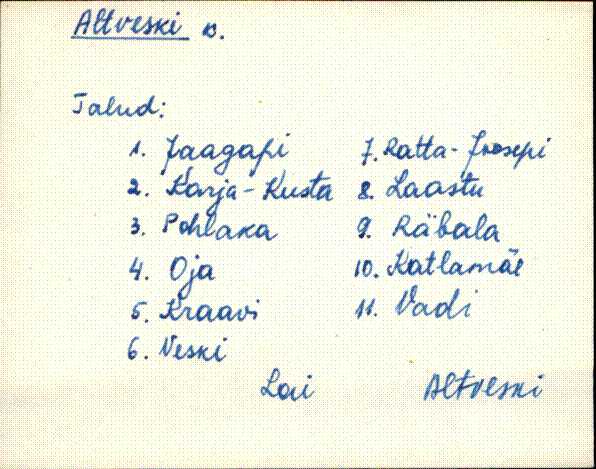 Altveski k.
Talud:
1. Jaagapi
2. Karja-Kusta
3. Pohlaka
4. Oja
5. Kraavi
6. Veski
7. Ratta-Joosepi
8. Laastu
9. Räbala
10. Katlamäe
11. Vadi
Lai Altveski